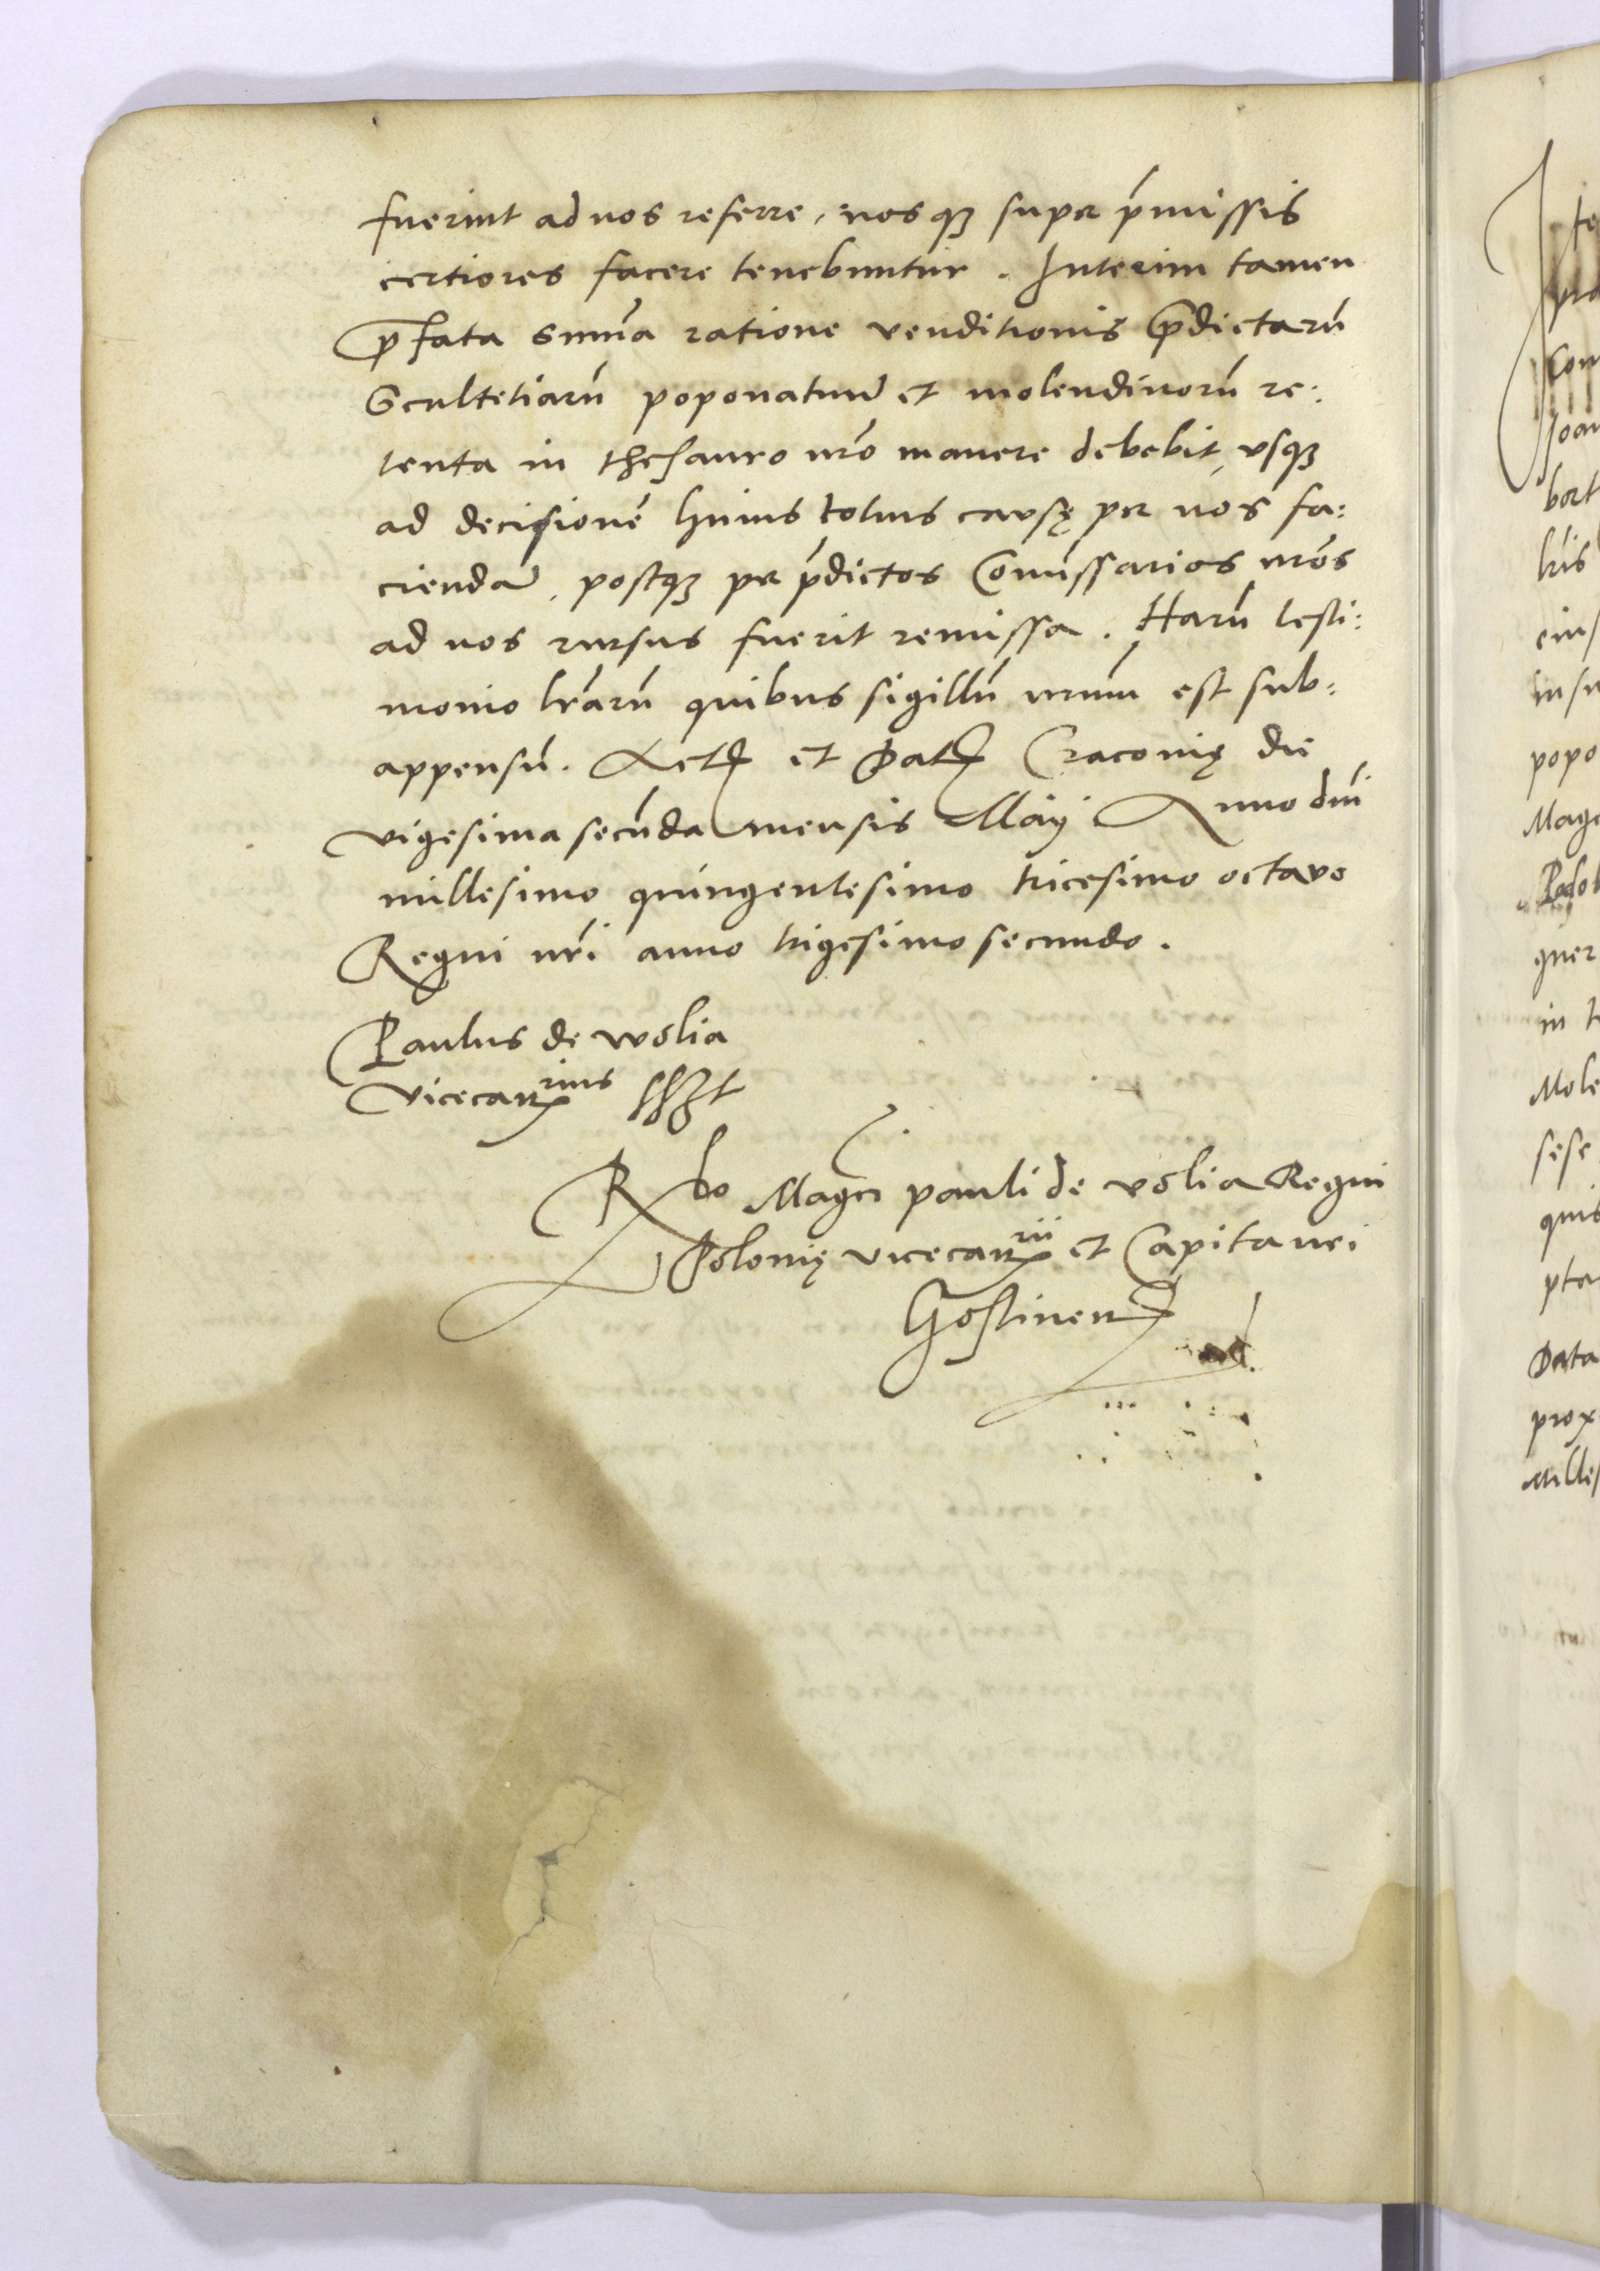 fuerint ad nos referre, nosqȝ super p̄missis
certiores facere tenebuntur. Interim tamen
p̄fata sum̄a ratione venditionis p̄dictarū
Scultetiarū poponatuu et molendinorū re:
tenta in thesauro nr̄o manere debebit, vsqȝ
ad decisionē huius totius causę per nos fa:
ciendā, postqȝ per p̄dictos Com̄issarios nr̄os
ad nos rursus fuerit remissa. Harū testi:
monio lr̄arū quibus sigillū nrūm est sub:
appensū. Act et Dat Cracovię die
vigesima secūda mensis Maij Anno dn̄i
millesimo quingentesimo tricesimo octavo
Regni nr̄i anno trigesimo secundo.
Paulus de wolia
vicecanrius sszt
Rlo Magci pauli de volia Regni
Polonię vicecanrii et Capitanei
Gostinen
te
pra
Com
Joan
bert
lris
eius
insu
popo
Mag
Podol
quer
in t
Mole
sese
quis
pta
Data
prox
Milles